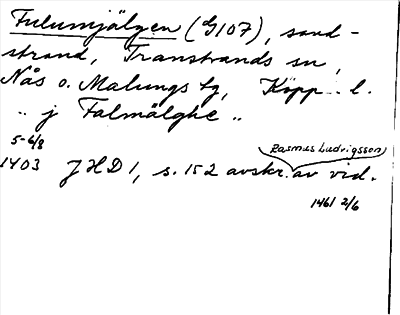 Fulumjälgen (G107), sand-
strand, Transtrands sn,
Nås o. Malungs tg, Kopp. l.
" j Falmälghe "
5-6/8 Rasmus Ludvigsson
1403 JHD 1, s. 152 avskr. av vid.
1461 2/6